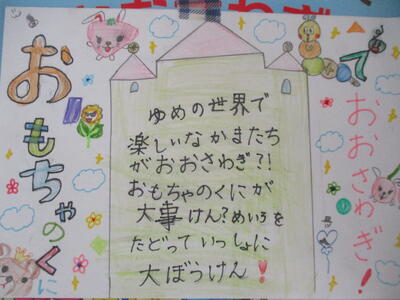 おもちゃのくに
で
おおさわぎ！
ゆめの世界で
楽しいなかまたち
がおおさわぎ?!
おもちゃのくにが
大事けん?めいろを
たどっていっしょに
大ぼうけん！